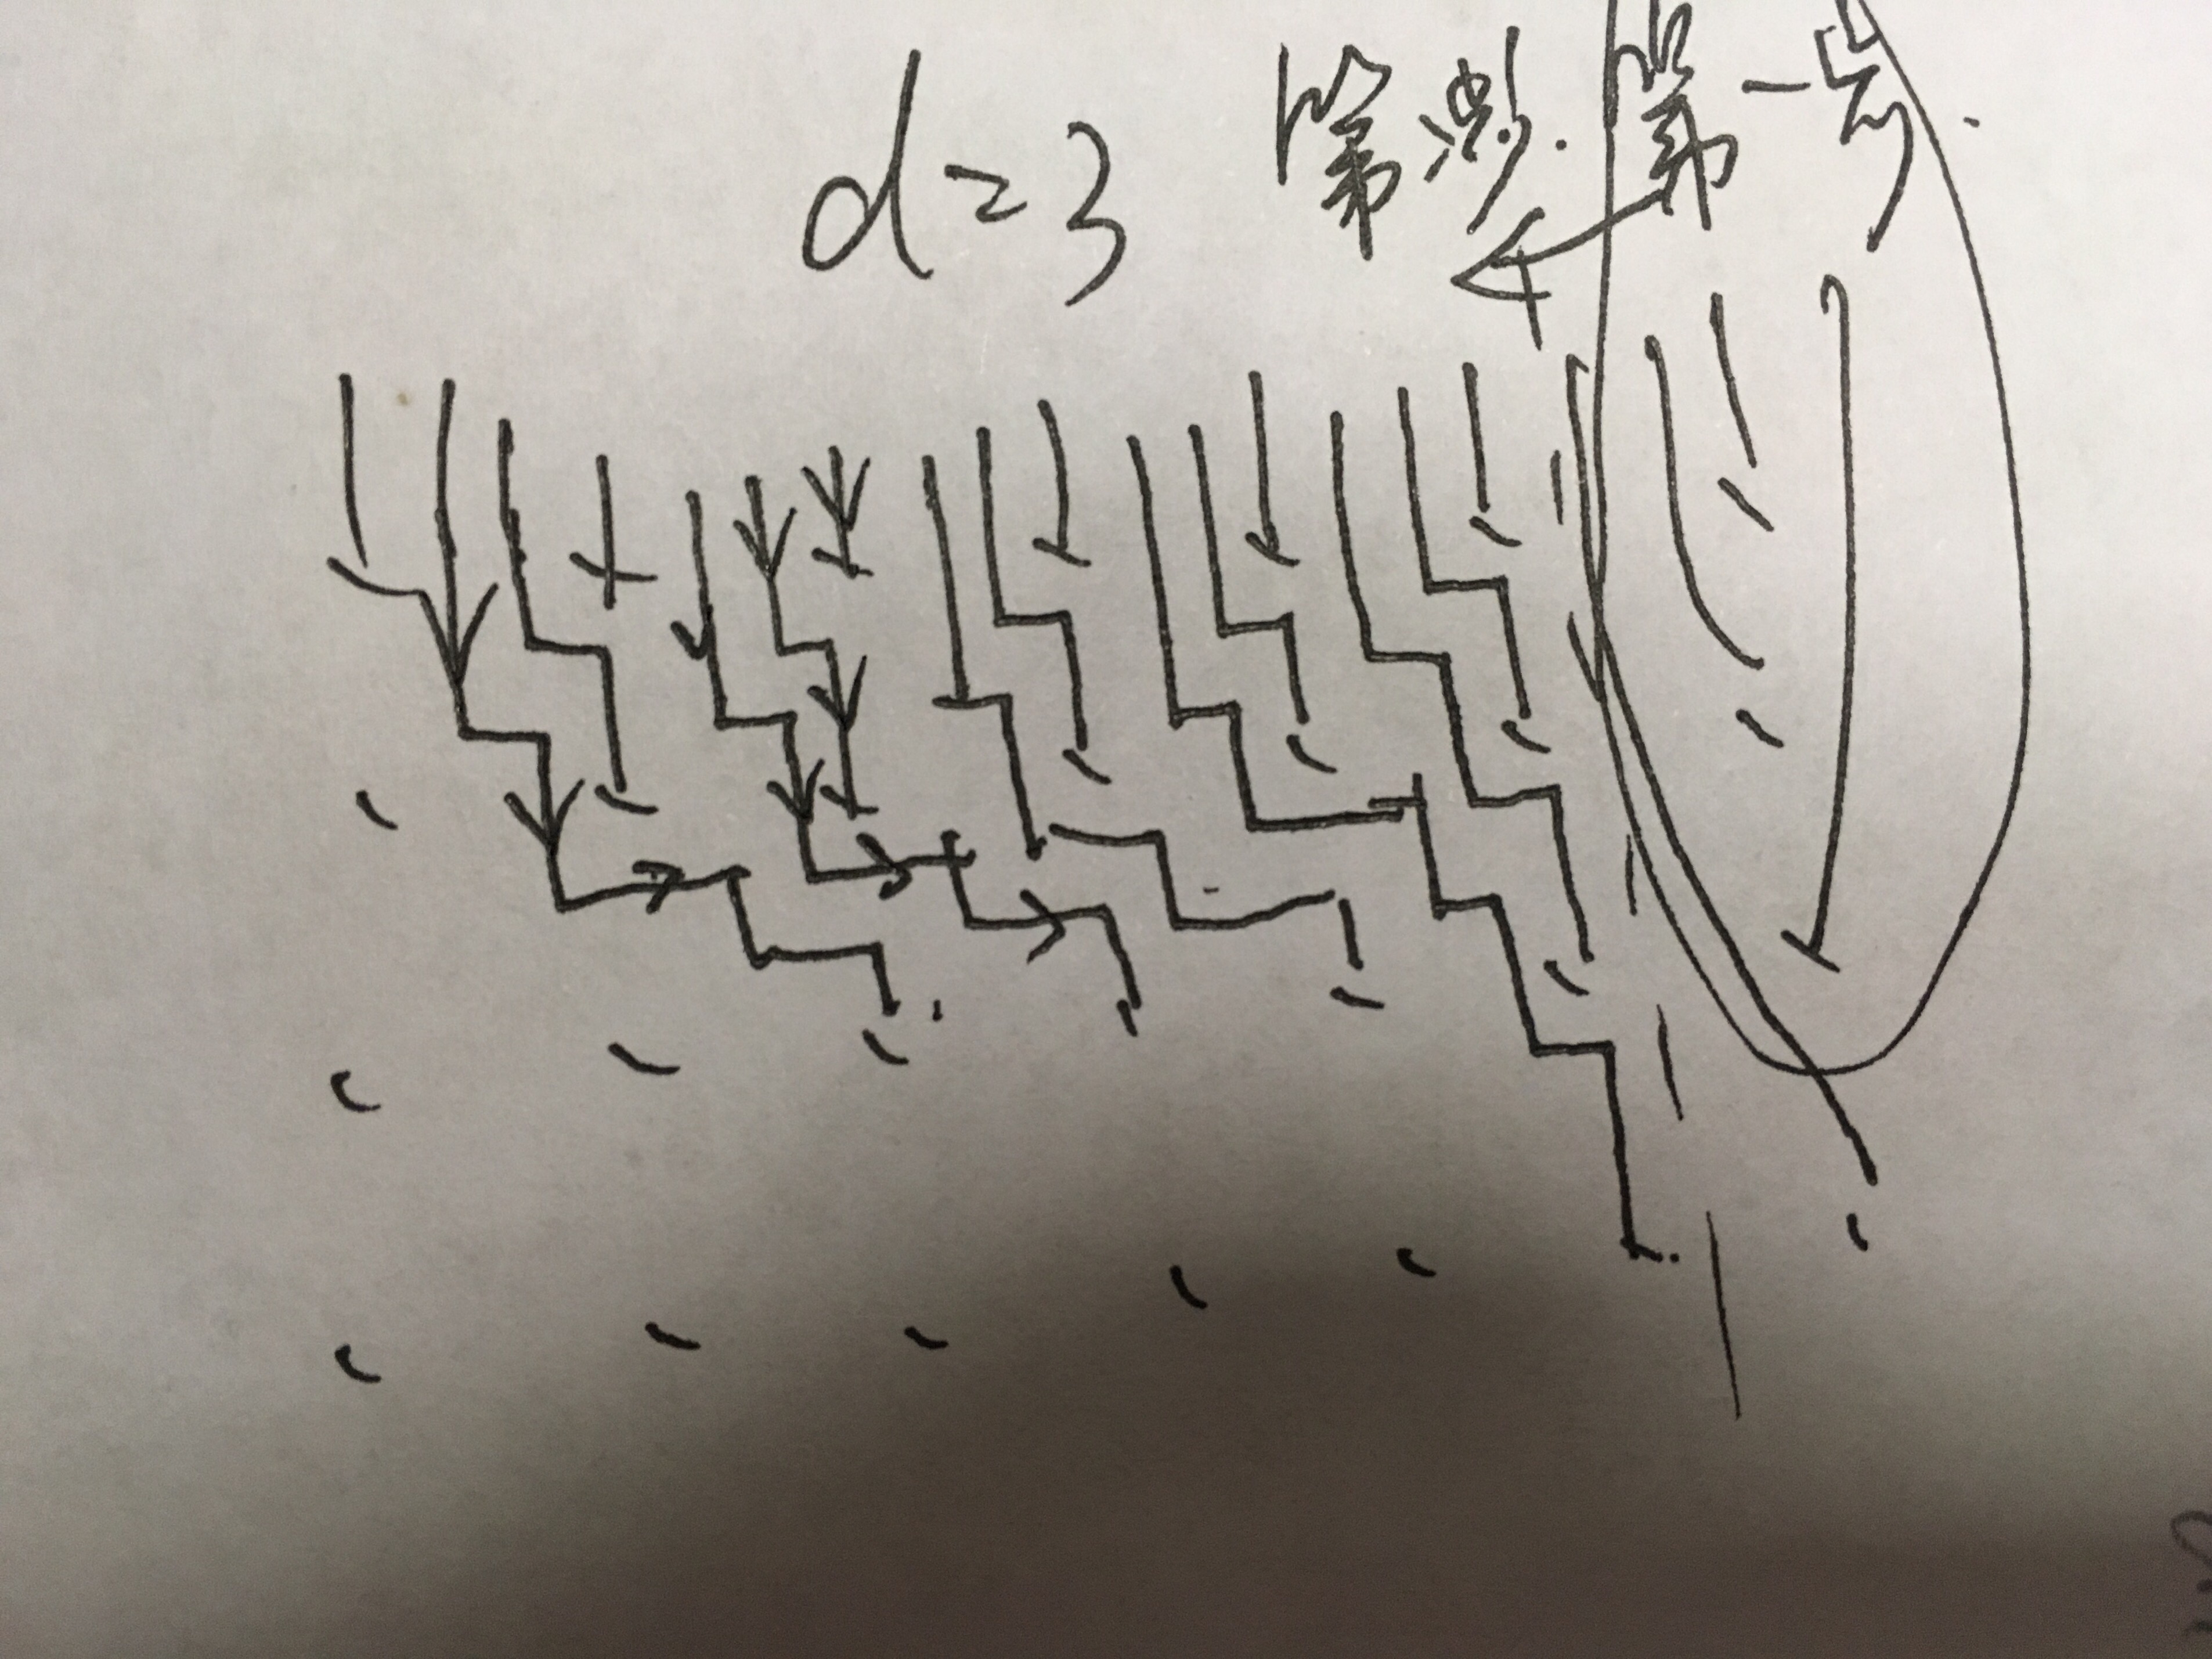 d=3 第二步. 第一步.